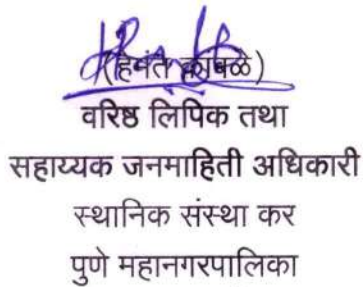 (हेमंत कांबळे)
वरिष्ठ लिपिक तथा
सहाय्यक जनमाहिती अधिकारी
स्थानिक संस्था कर
पुणे महानगरपालिका